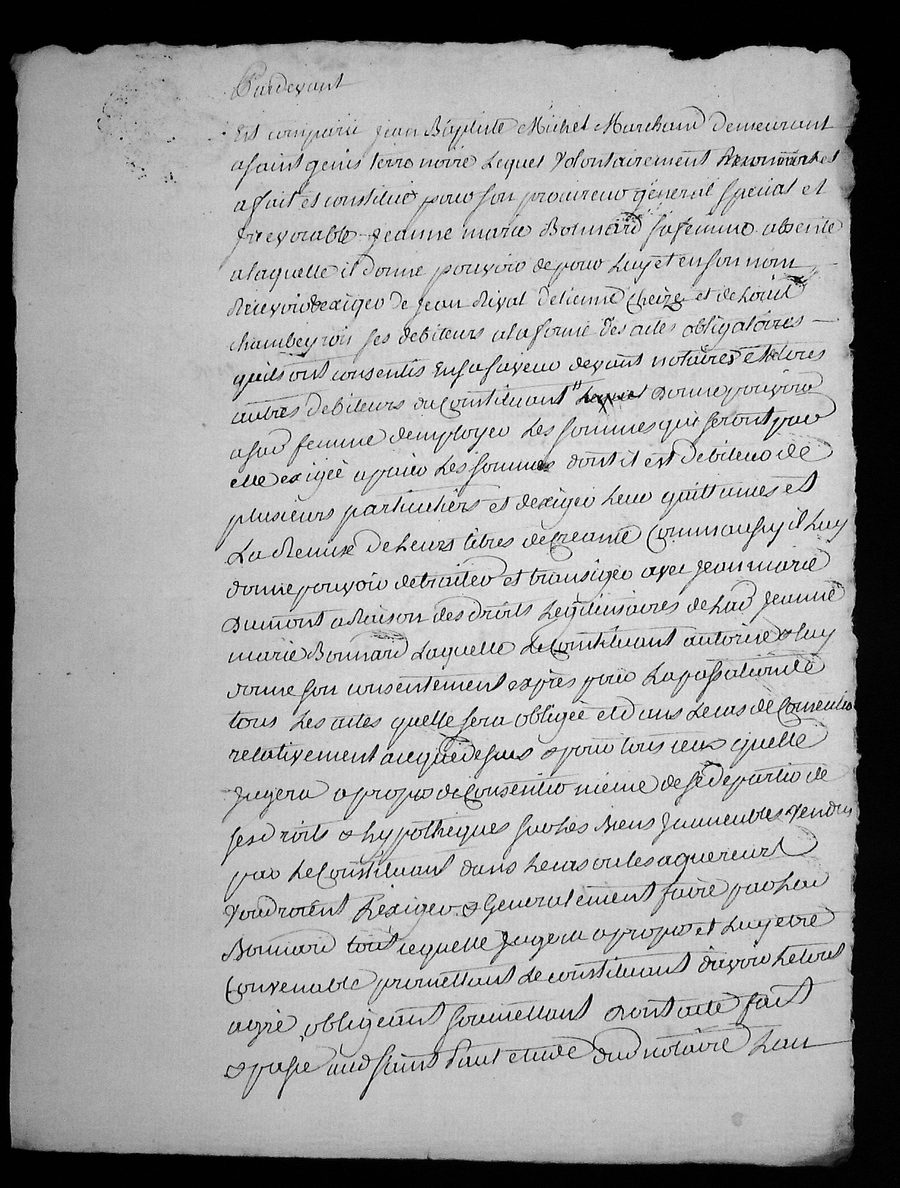 Pardevant
Est comparu Jean Baptiste Michel Marchand demeurant
a saint genis terre noire Lequel Volontairement
a fait et constitué pour son procureur général spécial et
Irrevocable Jeanne marie Bonnard sa femme absente
a laquelle il donne pouvoir de pour Luy et en son nom
Recevoir & exiger de Jean Rivat d'etienne Cheize et de Louis
chambeyron ses debiteurs a la forme des actes obligatoires
quils ont consentis En sa faveur devant notaires et de tous
autres debiteurs du Constituant Donne pouvoir
a sad femme demployer Les sommes qui seront par
elle exigée a paier Les sommes dont il est debiteur de
plusieurs particuliers et dexiger Leur quittances et
La Remise de Leurs titres de Creance Comm'aussy il Luy
donne pouvoir de traiter et transiger avec Jean marie
Dumont a Raison des droits Legitimaires de Lad Jeanne
marie Bonnard Laquelle Le Constituant autorise & luy
donne son consentement exprès pour La passation de
tous Les actes quelle sera obligée et dans Le cas de Consentir
relativement a ce que dessus & pour tous ceux quelle
Jugera a propos de Consentir meme de se departir de
ses droits & hypotheques sur Les Biens Immeubles Vendus
par Le Constituant dans Le cas ou les aquereurs
Voudroient L'exiger & Generalement faire par Lad
Bonnard tout ce quelle Jugera a propos et Luy etre
Convenable promettant Le constituant d'avoir Le tout
agréé obligeant soumettant Dont acte fait
& passé aud saint Paul etude dud notaire Lan